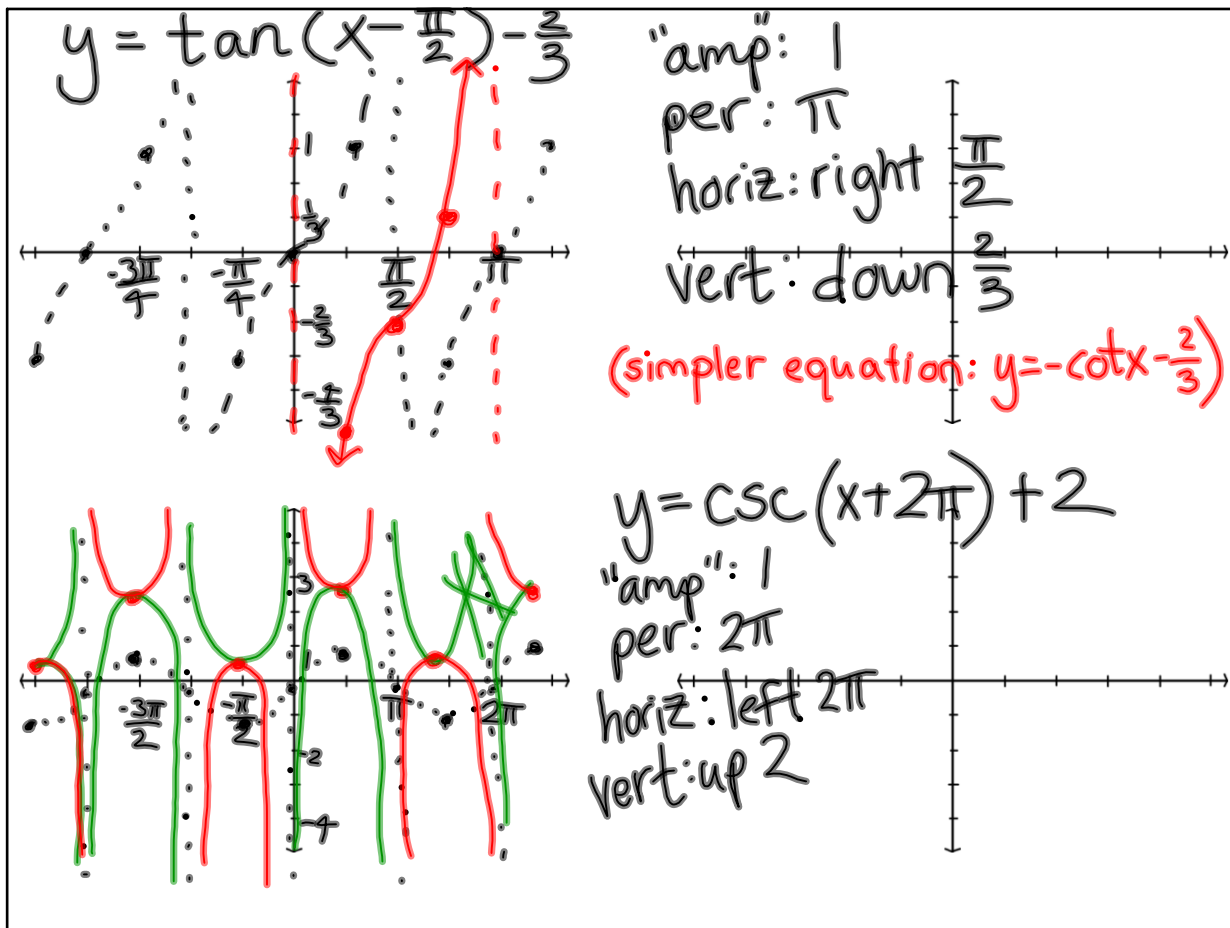 y = tan(x-π/2)-2/3
"amp": 1
per: π
horiz: right π/2
vert: down 2/3
(simpler equation: y=-cotx-2/3)
1
1/3
-3π/4 -π/4 π/2 π
-2/3
-4/3
y=csc(x+2π)+2
"amp": 1
per: 2π
horiz: left 2π
vert: up 2
3
1
-3π/2 -π/2 π 2π
-2
-4